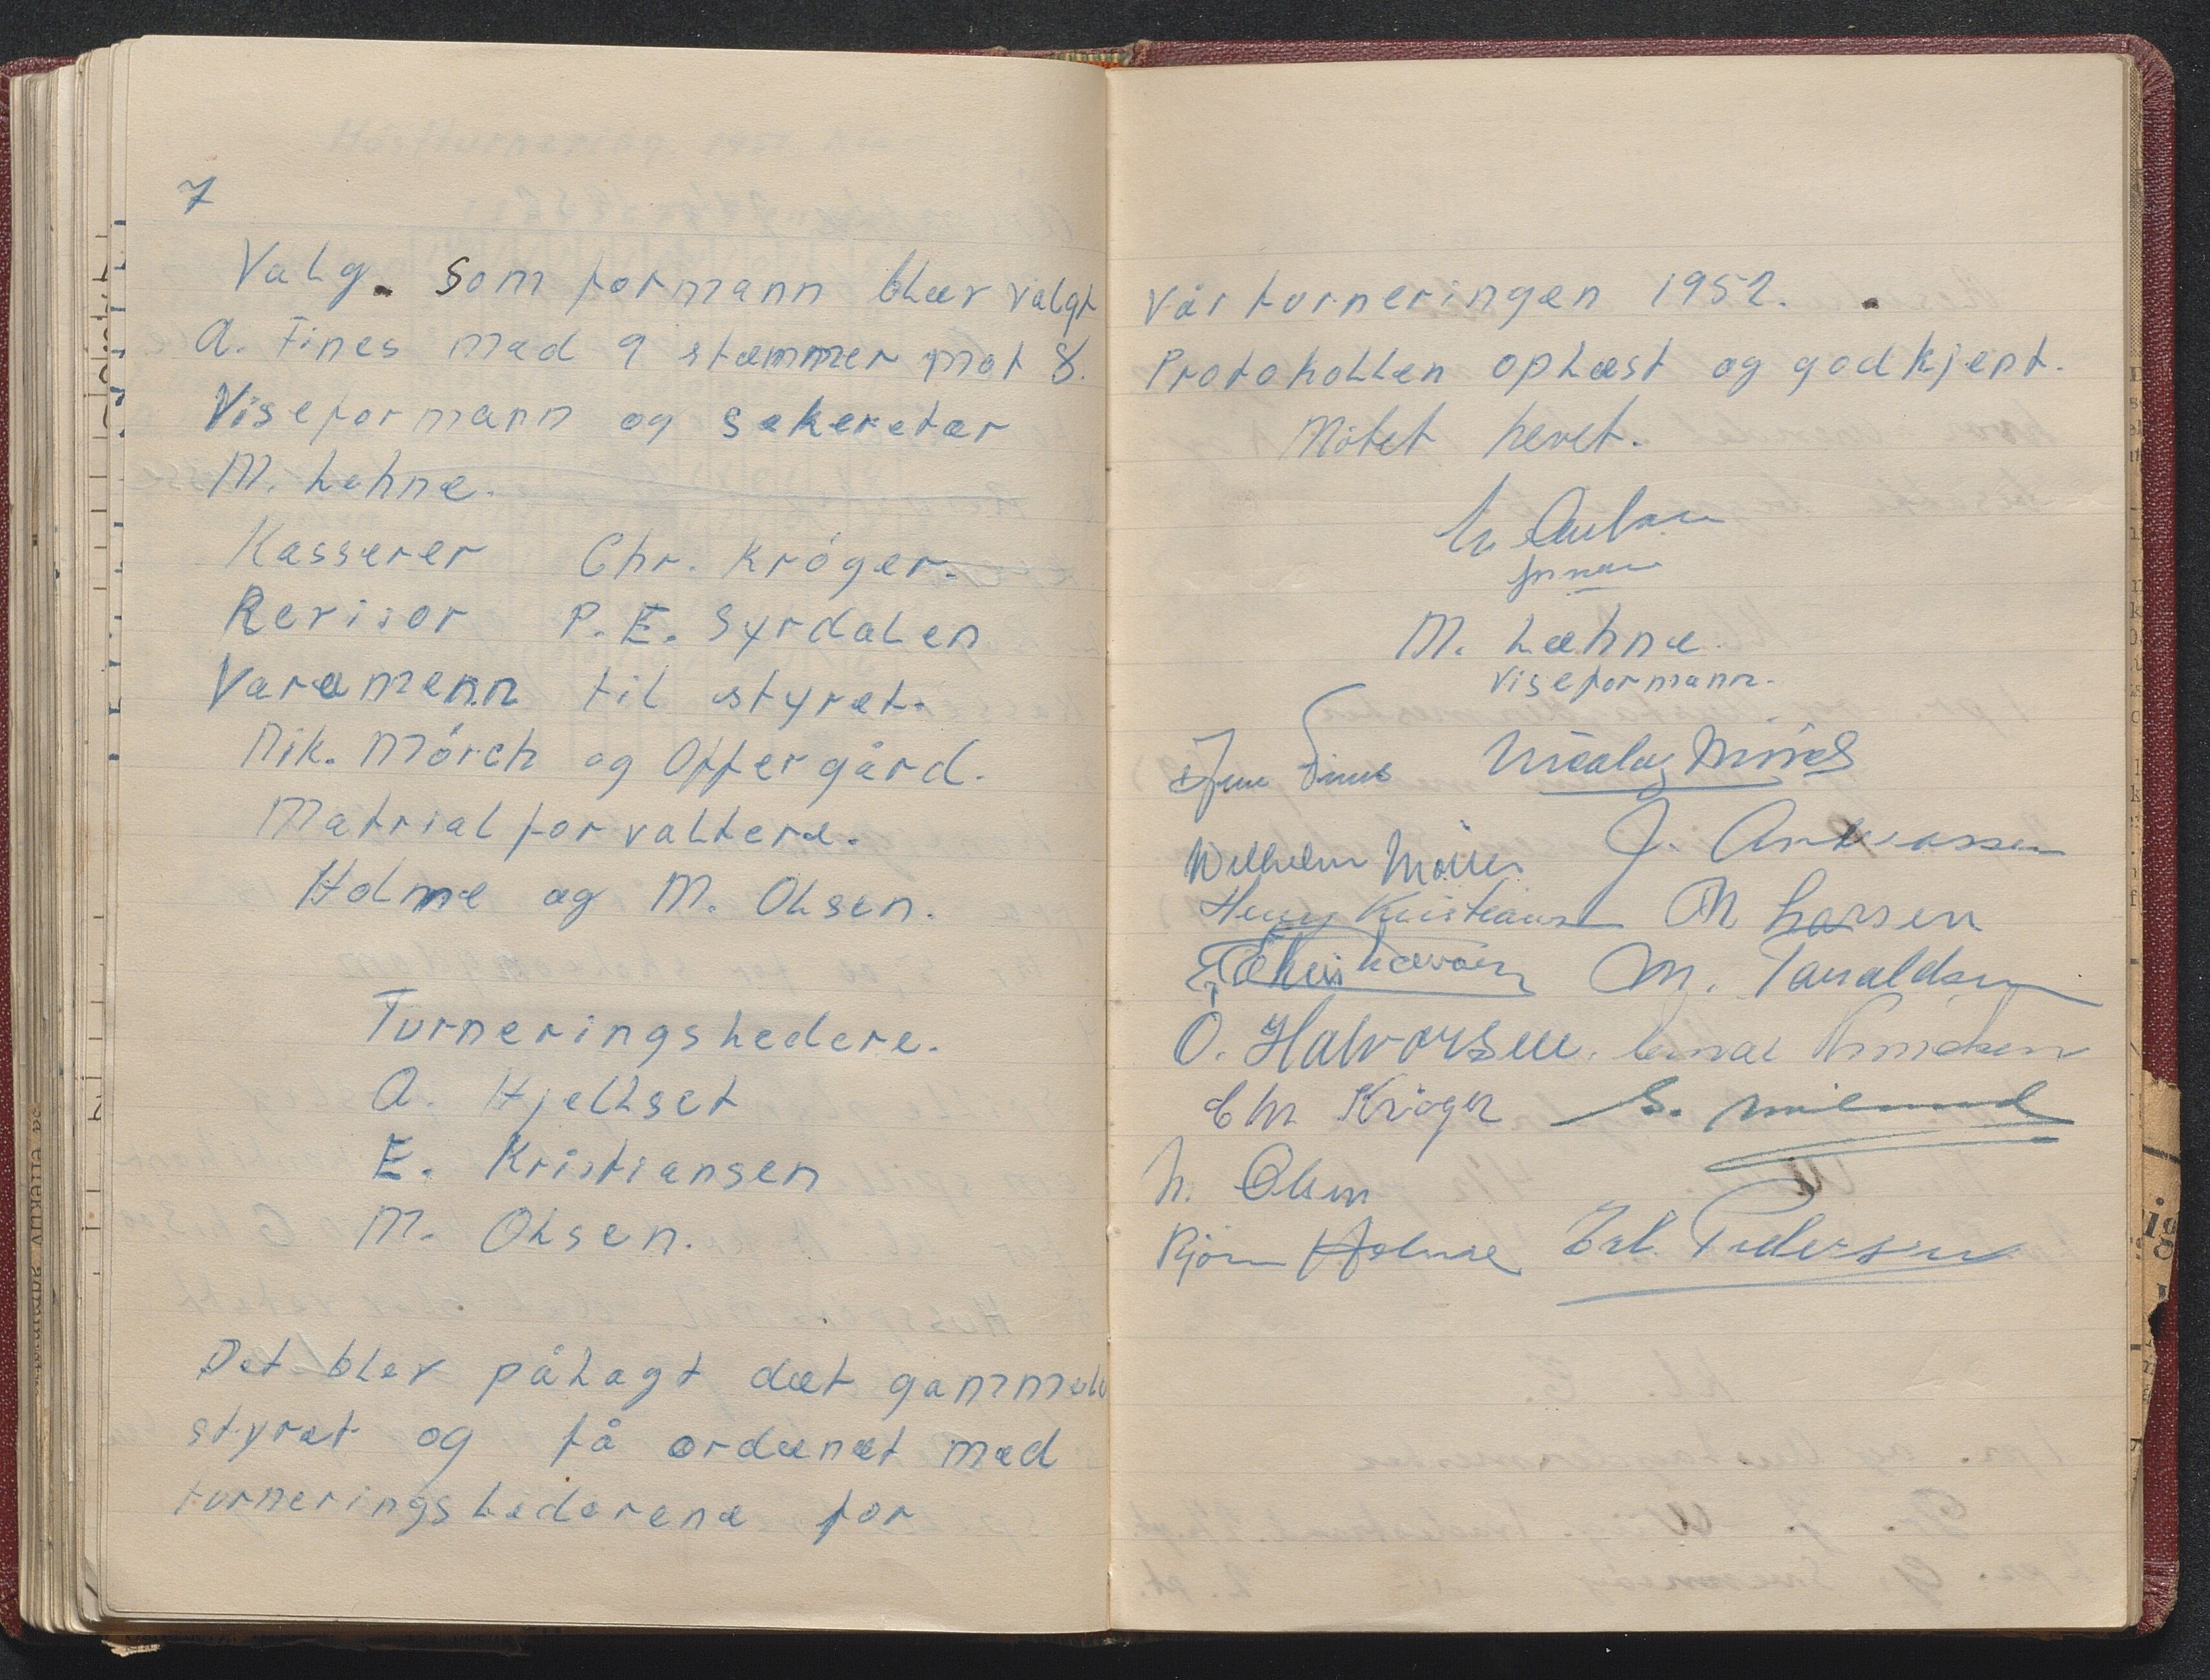 7
Valg. Som formann blev valgt
A. Fines med 9 stemmer mot 8.
Viseformann og sekeretær
M. Lehne.
Kasserer Chr. Kröger.
Revisor P. E. Syrdalen
Varamenn til styret.
Nik. Mörch og Offergård.
Matrialforvaltere.
Holme og M. Olsen.
Turneringsledere.
A. Hjellset
E. Kristiansen
M. Olsen.
Det blev pålagt det gammele
styret og få ordenet med
turneringslederene for
vårturneringen 1952.
Protokollen oplest og godkjent.
Mötet hevet.
formann
M. Lehne.
viseformann.
Fines Nicolay Mörch
Wilhelm Möller J. Andreassen
Henry Kristiansen M Larsen
E. Kristiansen M. Taraldsen
O. Halvorsen.
Chr Kröger S.
M. Olsen
Björn Holme Pedersen